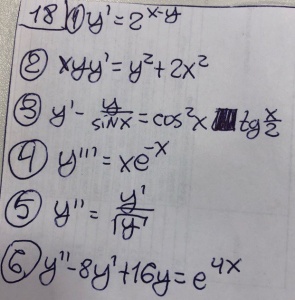 18 ① y' = 2^{x-y}
② xyy' = y² + 2x²
③ y' - y/sinx = cos²x tg x/2
④ y''' = xe^{-x}
⑤ y'' = y'/√y'
⑥ y'' - 8y' + 16y = e^{4x}